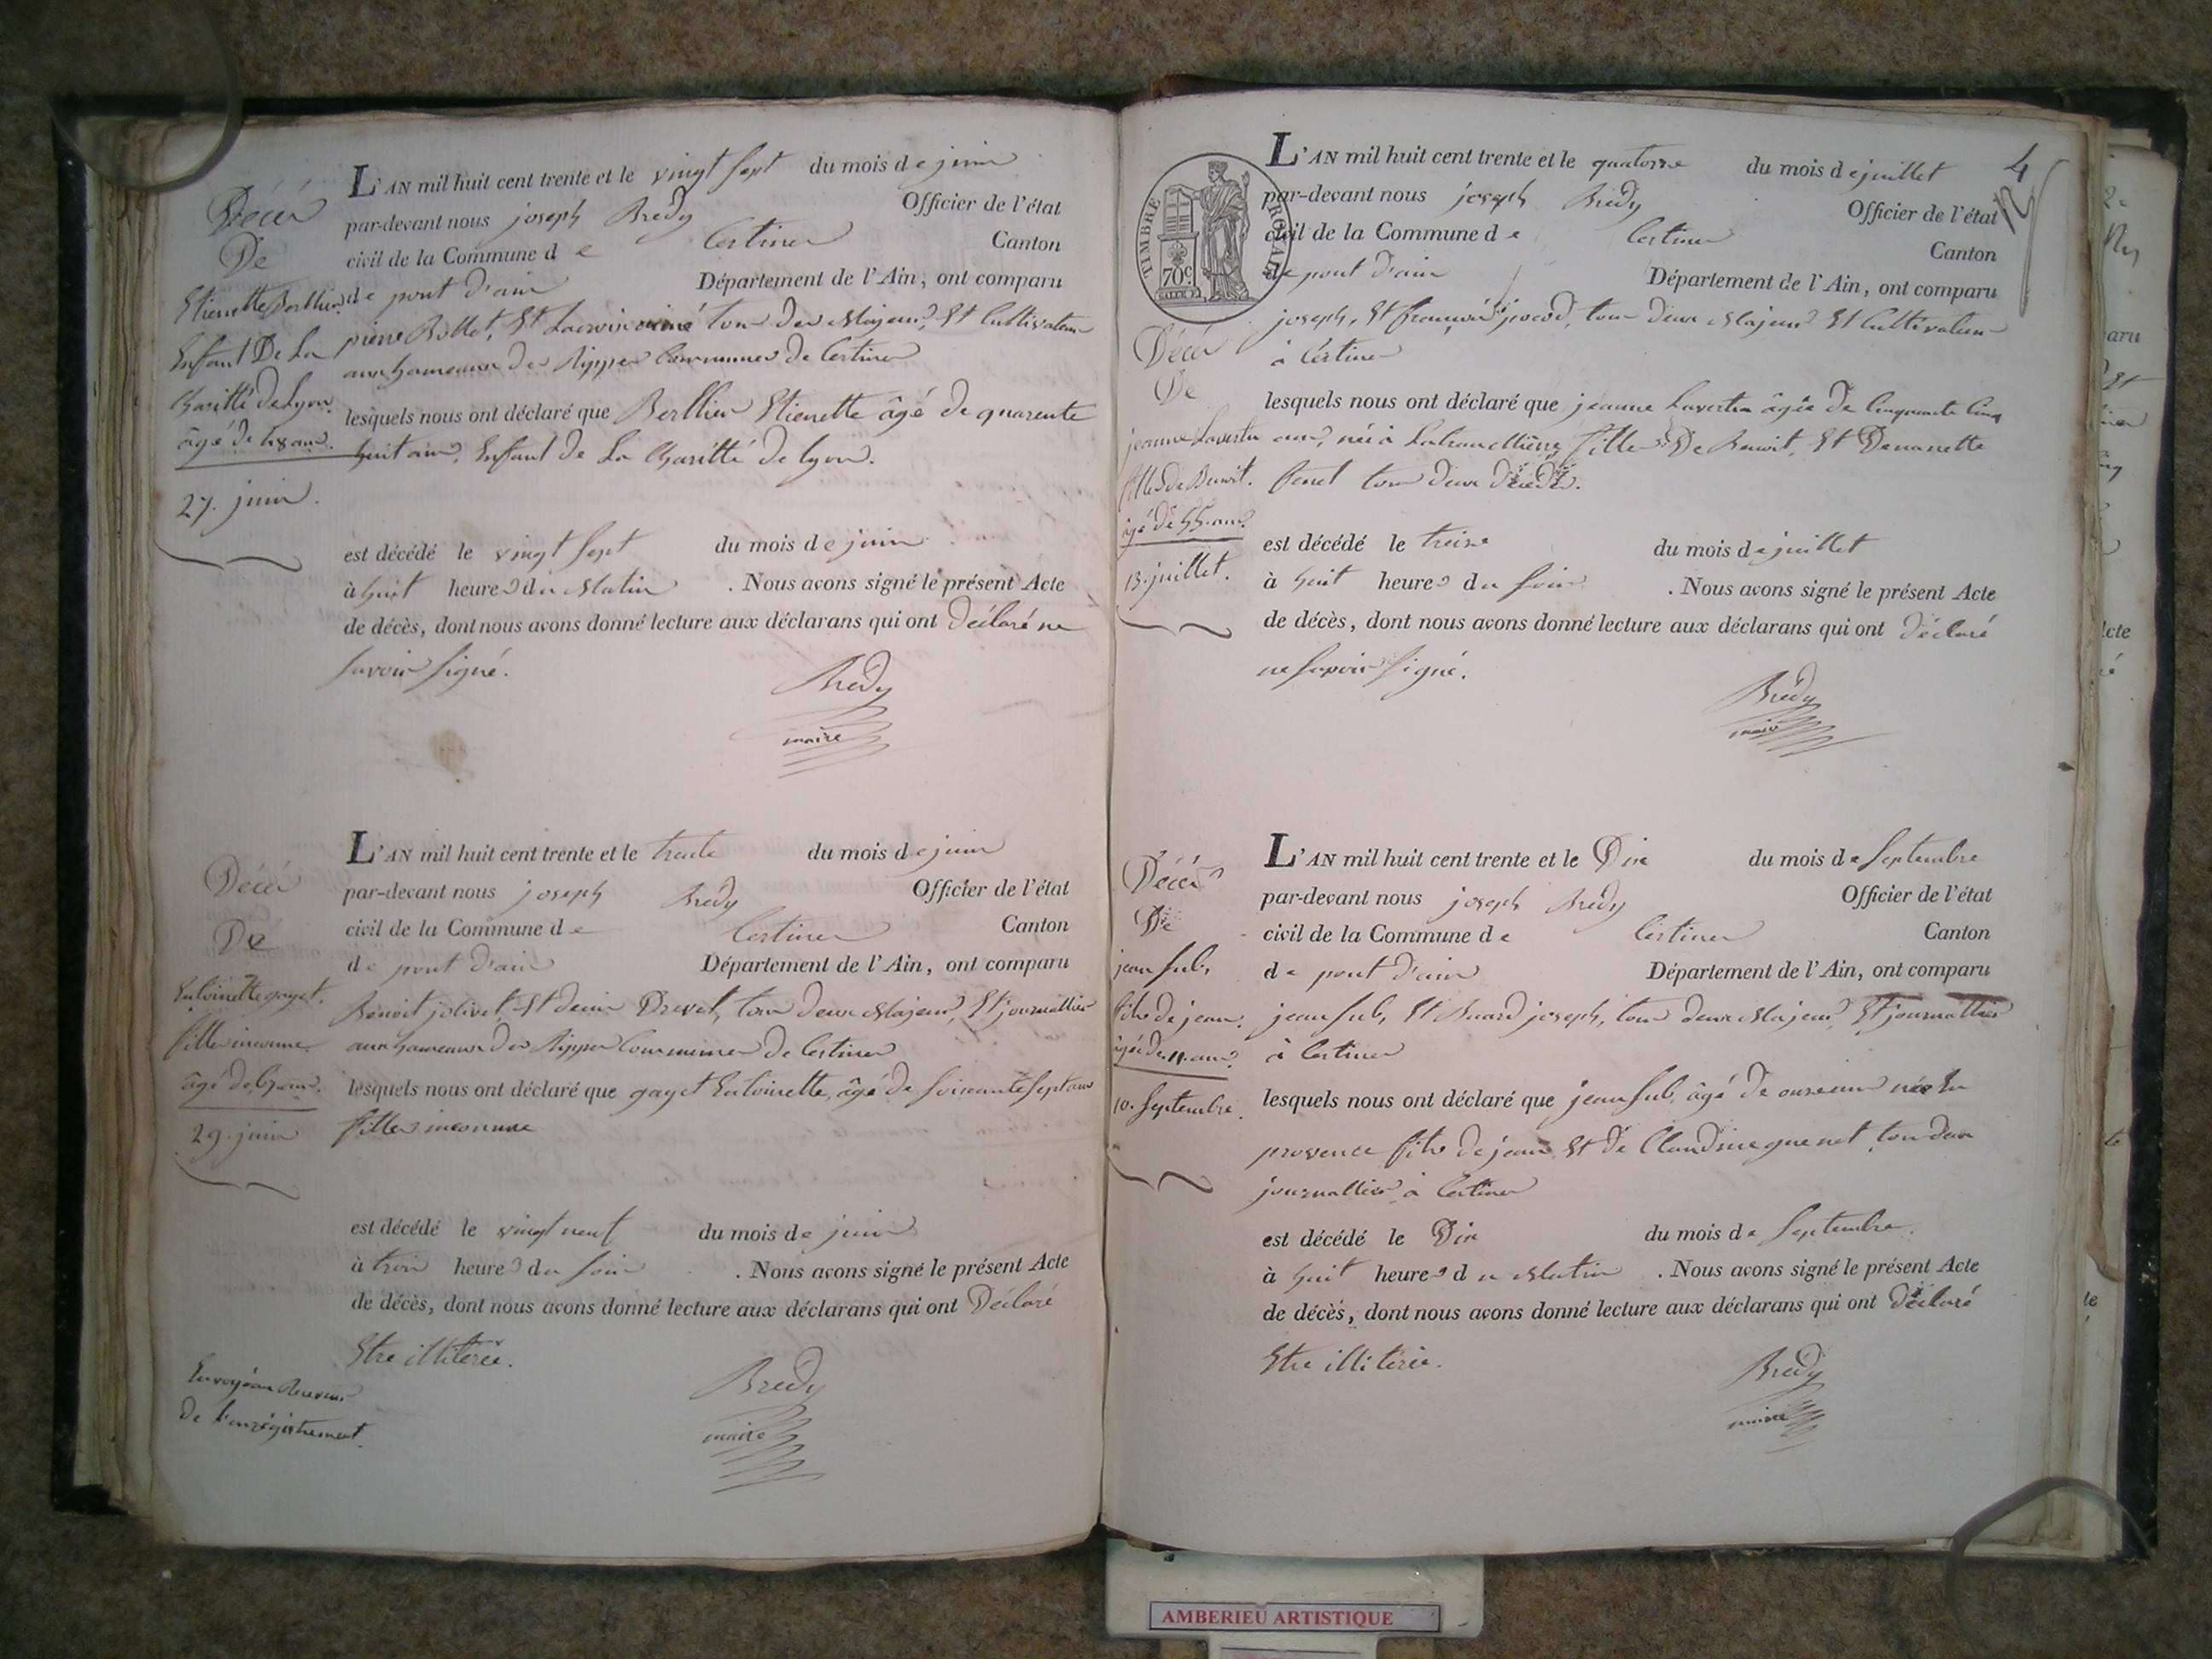 Décès
De
Etiennette Berthier
Enfant De La
Charitté de Lyon.
âgé de 48 ans.
27. juin.
L'AN mil huit cent trente et le vingt sept du mois de juin
par-devant nous joseph Brédy Officier de l'état
civil de la Commune de Certines Canton
de pont d'ain Département de l'Ain, ont comparu
pierre Billet, Et tous deux Majeurs, Et Cultivateurs
aux hameaux des Rippes Communes de Certines
lesquels nous ont déclaré que Berthier Etienette âgé de quarente
huit ans, Enfant de La Charitté de lyon.
est décédé le vingt sept du mois de juin
à huit heures du Matin . Nous avons signé le présent Acte
de décès, dont nous avons donné lecture aux déclarans qui ont Déclaré ne
savoir signé.
Brédy
maire
Décès
De
Entoinette gayet.
fille inconnue
âgé de 67 ans.
29. juin
L'AN mil huit cent trente et le trente du mois de juin
par-devant nous joseph Brédy Officier de l'état
civil de la Commune de Certines Canton
de pont d'ain Département de l'Ain, ont comparu
Benoit jolivet, Et denis Drevet, tous deux Majeurs, Et journallier
aux hameaux des Rippes Communes de Certines
lesquels nous ont déclaré que gayet Entoinette, âgé de soixante sept ans
fille inconnue
est décédé le vingt neuf du mois de juin
à trois heures du soir . Nous avons signé le présent Acte
de décès, dont nous avons donné lecture aux déclarans qui ont Déclaré
Etre illiterée.
Brédy
maire
Envoyé au Receveur
de l'enregistrement.
4
TIMBRE ROYAL
70 c.
Décès
De
jeanne Lavertu
fille de Benoit.
âgé de 55 ans.
13. juillet.
L'AN mil huit cent trente et le quatorze du mois de juillet
par-devant nous joseph Brédy Officier de l'état
civil de la Commune de Certines Canton
de pont d'ain Département de l'Ain, ont comparu
joseph, Et françois jocod, tous deux Majeurs Et Cultivateurs
à Certines
lesquels nous ont déclaré que jeanne Lavertu âgée De Cinquante Cinq
ans, née à fille De Benoit, Et Devanette
tous deux décédés.
est décédé le treize du mois de juillet
à huit heures du soir . Nous avons signé le présent Acte
de décès, dont nous avons donné lecture aux déclarans qui ont déclaré
ne savoir signé.
Brédy
maire
Décès
De
jean sub,
fils de jean.
âgé de 11 ans.
10. Septembre.
L'AN mil huit cent trente et le Dix du mois de Septembre
par-devant nous joseph Brédy Officier de l'état
civil de la Commune de Certines Canton
de pont d'ain Département de l'Ain, ont comparu
jean sub, Et Suard joseph, tous deux Majeurs, Et journallier
à Certines
lesquels nous ont déclaré que jean sub, âgé de onze ans né En
provence fils de jean Et de Claudine guenet, tous deux
journallier à Certines
est décédé le Dix du mois de Septembre.
à huit heures du Matin . Nous avons signé le présent Acte
de décès, dont nous avons donné lecture aux déclarans qui ont Déclaré
Etre illiterée.
Brédy
maire
AMBERIEU ARTISTIQUE